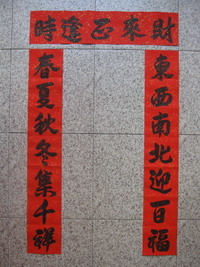 財來正逢時
東西南北迎百福
春夏秋冬集千祥